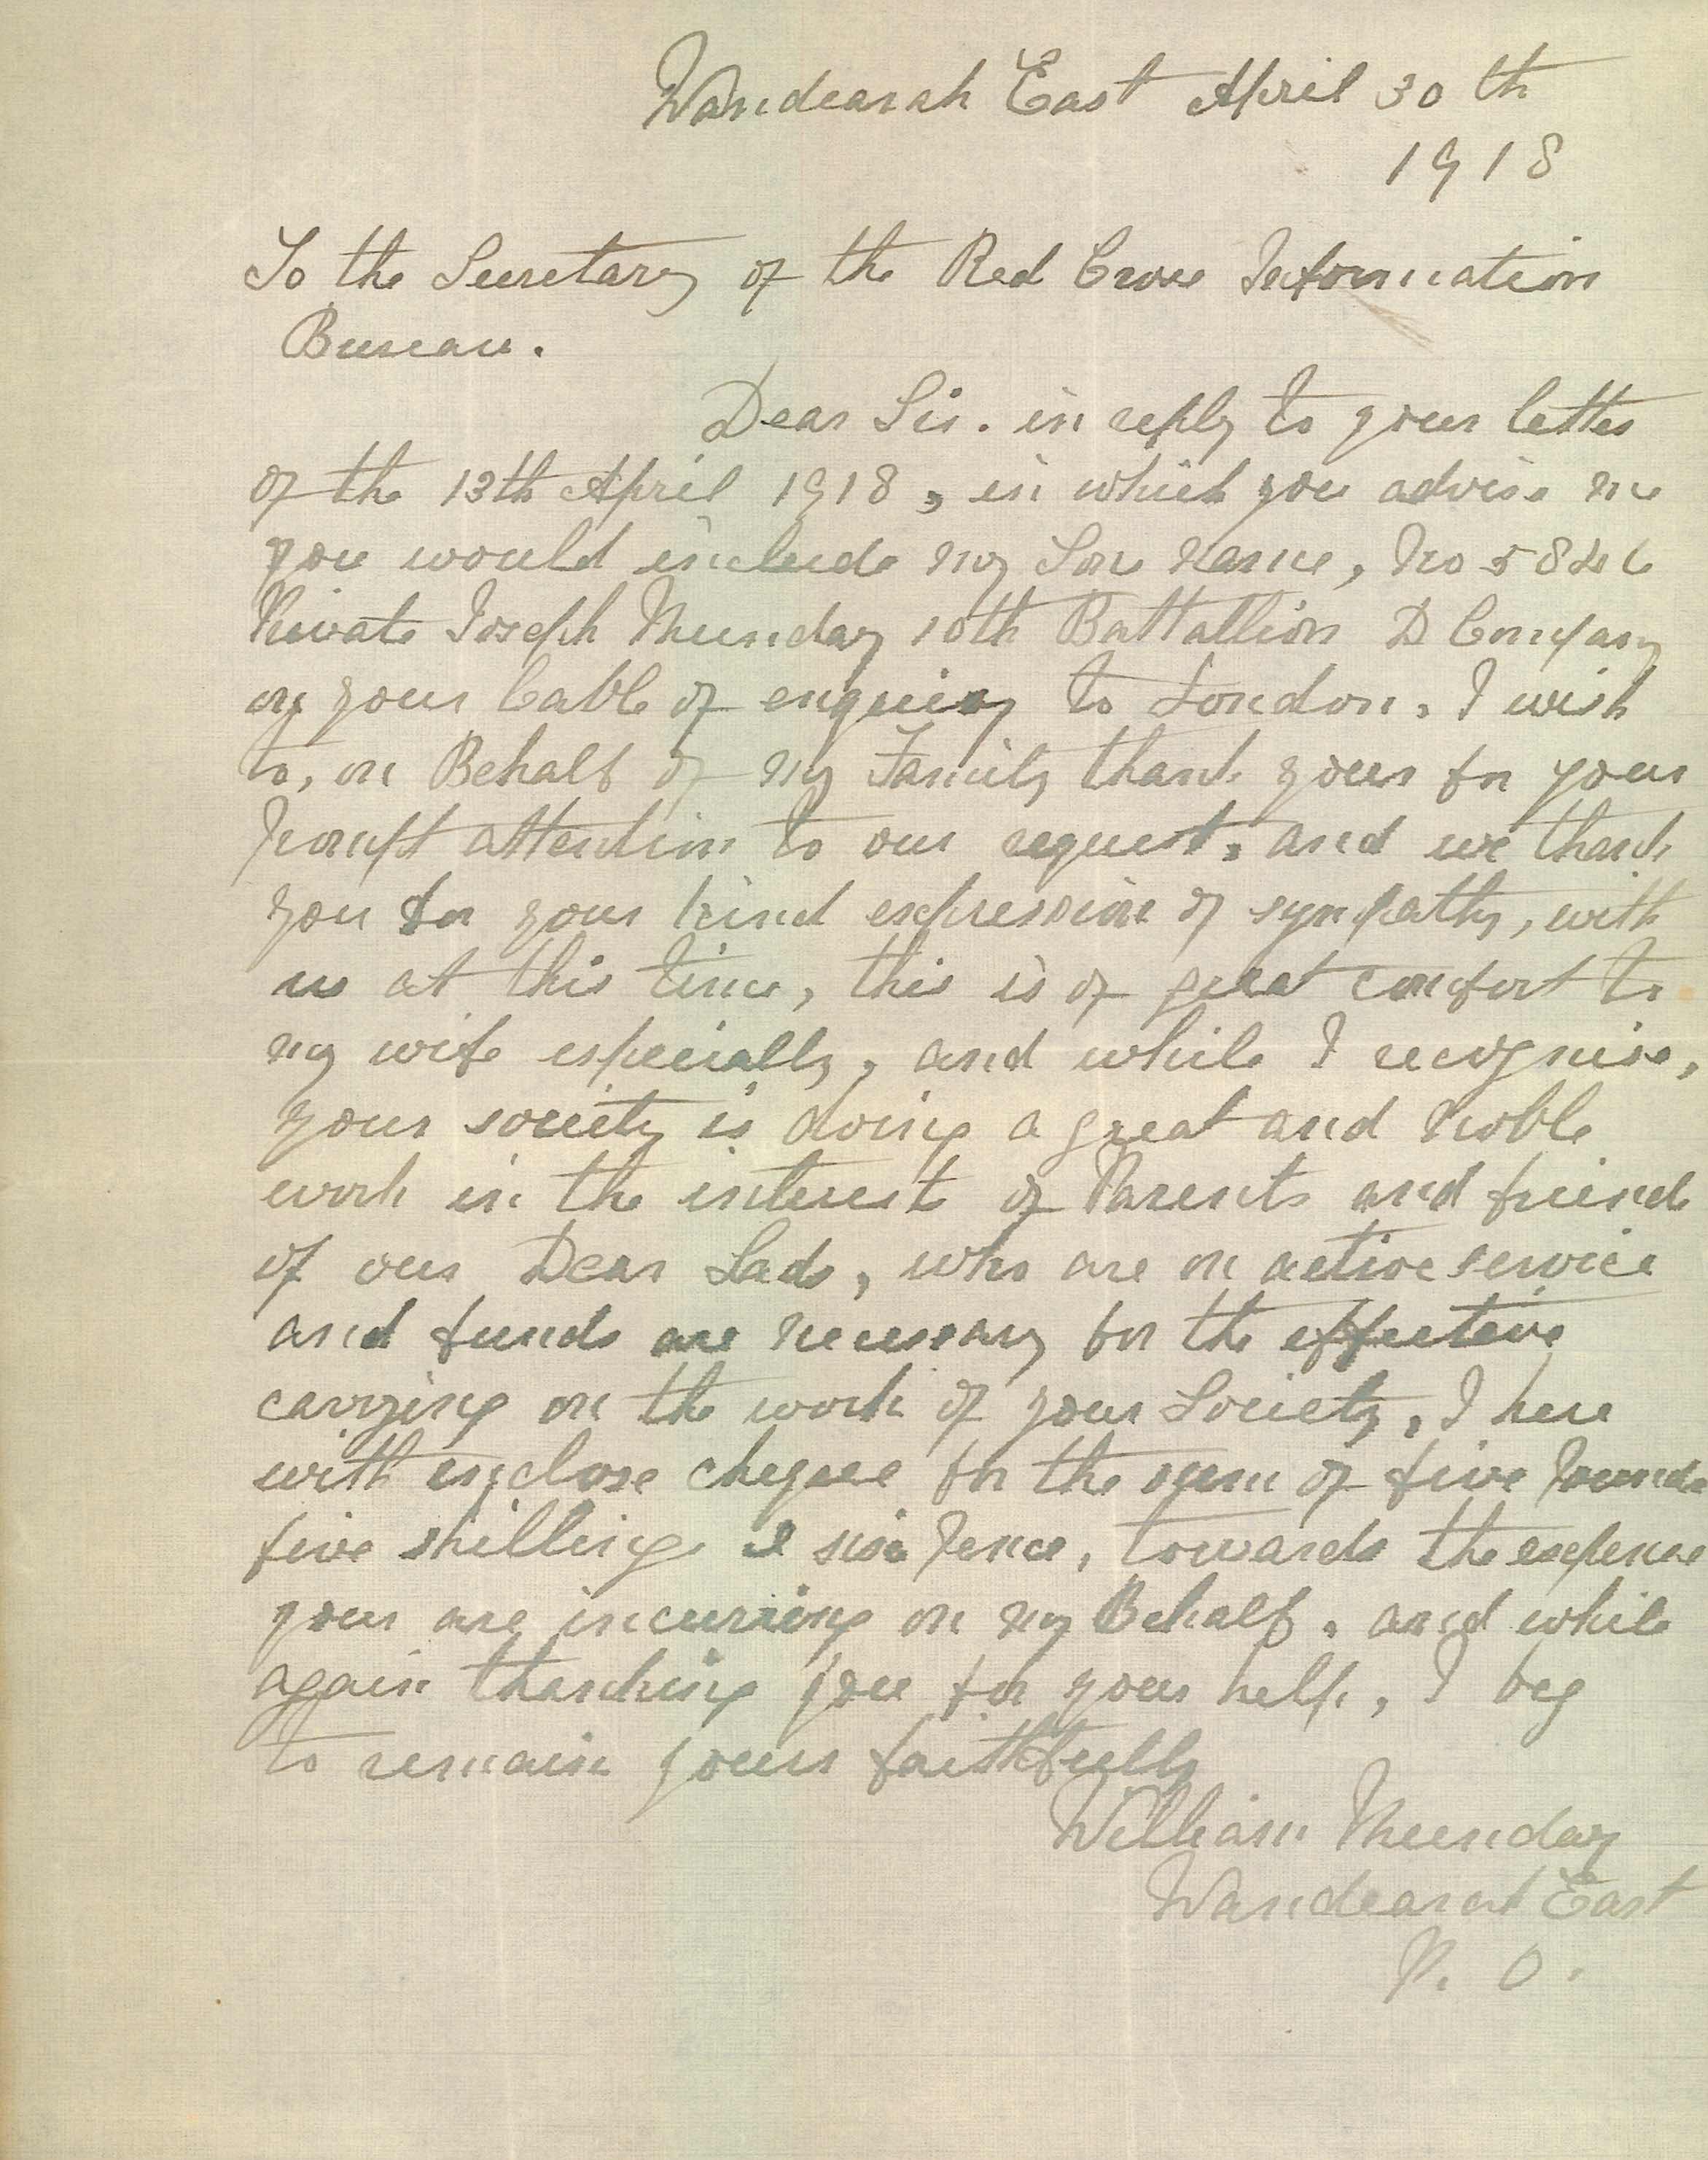 Wandearah East April 30th
1918
To the Secretary of the Red Cross Information
Bureau.
Dear Sir. in reply to your letter
of the 13th April 1918, in which you advise me
you would include my Son name, No 5846
Private Joseph Munday 10th Battallion D Company
on your Cable of enquiry to London. I wish
to, on Behalf of my Family thank your for your
prompt attention to our request, and we thank
you for your kind expression of sympathy, with
us at this time, this is of great comfort to
my wife especially, and while I recognise,
your society is doing a great and Noble
work in the interest of Parents and friends
of our Dear Lads, who are on active service
and funds are necessary for the effective
carrying on the work of your Society, I here
with enclose cheque for the sum of five Pounds
five shillings & six Pence, towards the expense
your are incurring on my Behalf. and while
again thanking you for your help, I beg
to remain yours faithfully
William Munday
Wandearah East
P. O.